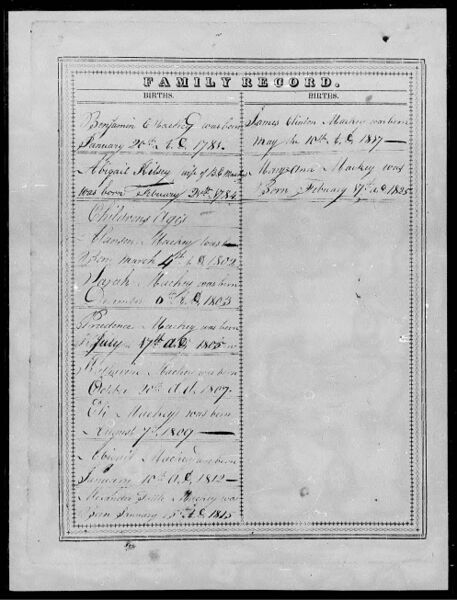 FAMILY RECORD.
BIRTHS.
Benjamin C Mackey was born
January 20th A.D. 1781.
Abigail Kelsey wife of B C Mackey
was born February 20th 1784
Childrens Ages
Hanson Mackey was
Born march 4th A.D 1802
Sarah Mackey was born
December 6th A.D, 1803
Prudence Mackey was born
July 17th A.D, 1805
Mackey was born
October 20th A.d. 1807
Eli Mackey was born
August 7th 1809
Abigail Mackey was born
January 10th A.D, 1812
Alexander Mackey was
Born January 15th A.D 1815
BIRTHS.
James Clinton Mackey was born
may the 10th A.D. 1817
Maryann Mackey was
Born February 17th A.D 1825